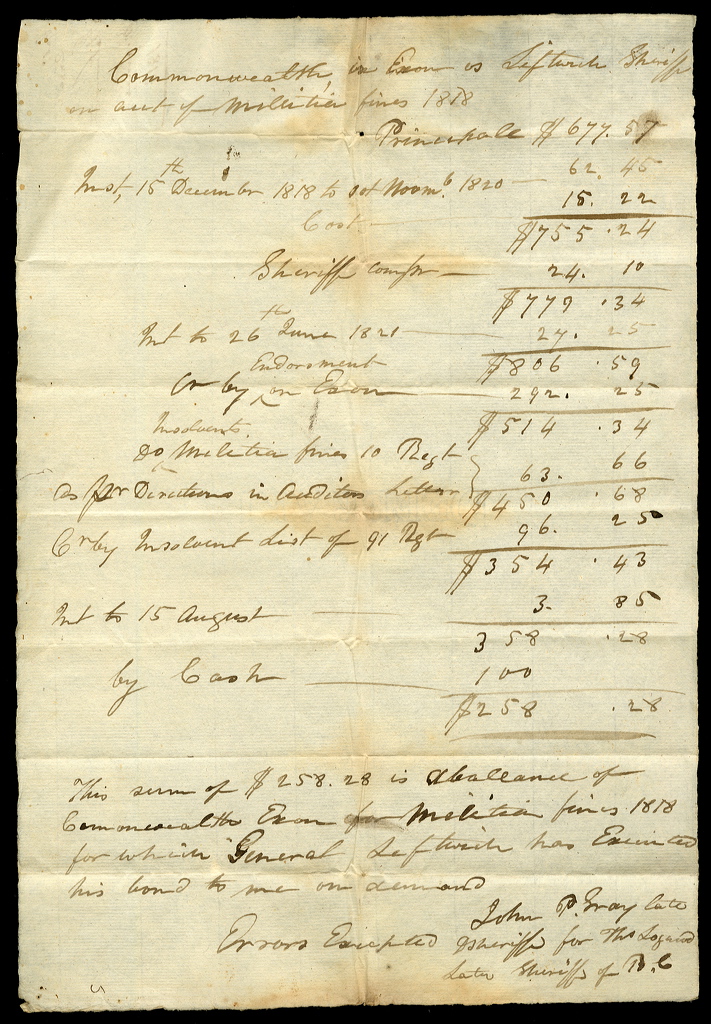 Commonwealth, in Exon vs Leftwich Sheriff
on acct of Militia fines 1818
Principale $677.57
Inst, 15th December 1818 to 1st Novmb. 1820 — 62.45
Cost — 15.22
$755.24
Sheriff comssn — 24.10
$779.34
Int to 26th June 1821 — 27.25
$806.59
Endorsment
Cr by ^ on Exon — 292.25
$514.34
Insolvents
Do ^ Militia fines 10 Regt } 63.66
as per Directions in Auditors Letter
$450.68
Cr by Insolvent List of 91 Regt 96.25
$354.43
Int to 15 August — 3.85
358.28
by Cash — 100
$258.28
This sum of $258.28 is a ballance of
Commonwealths Exon for Militia fines 1818
for which General Leftwich has Executed
his bond to me on demand
John P. Gray late
Errors Excepted dsheriff for Ths Logwood
Late Sheriff of B.C